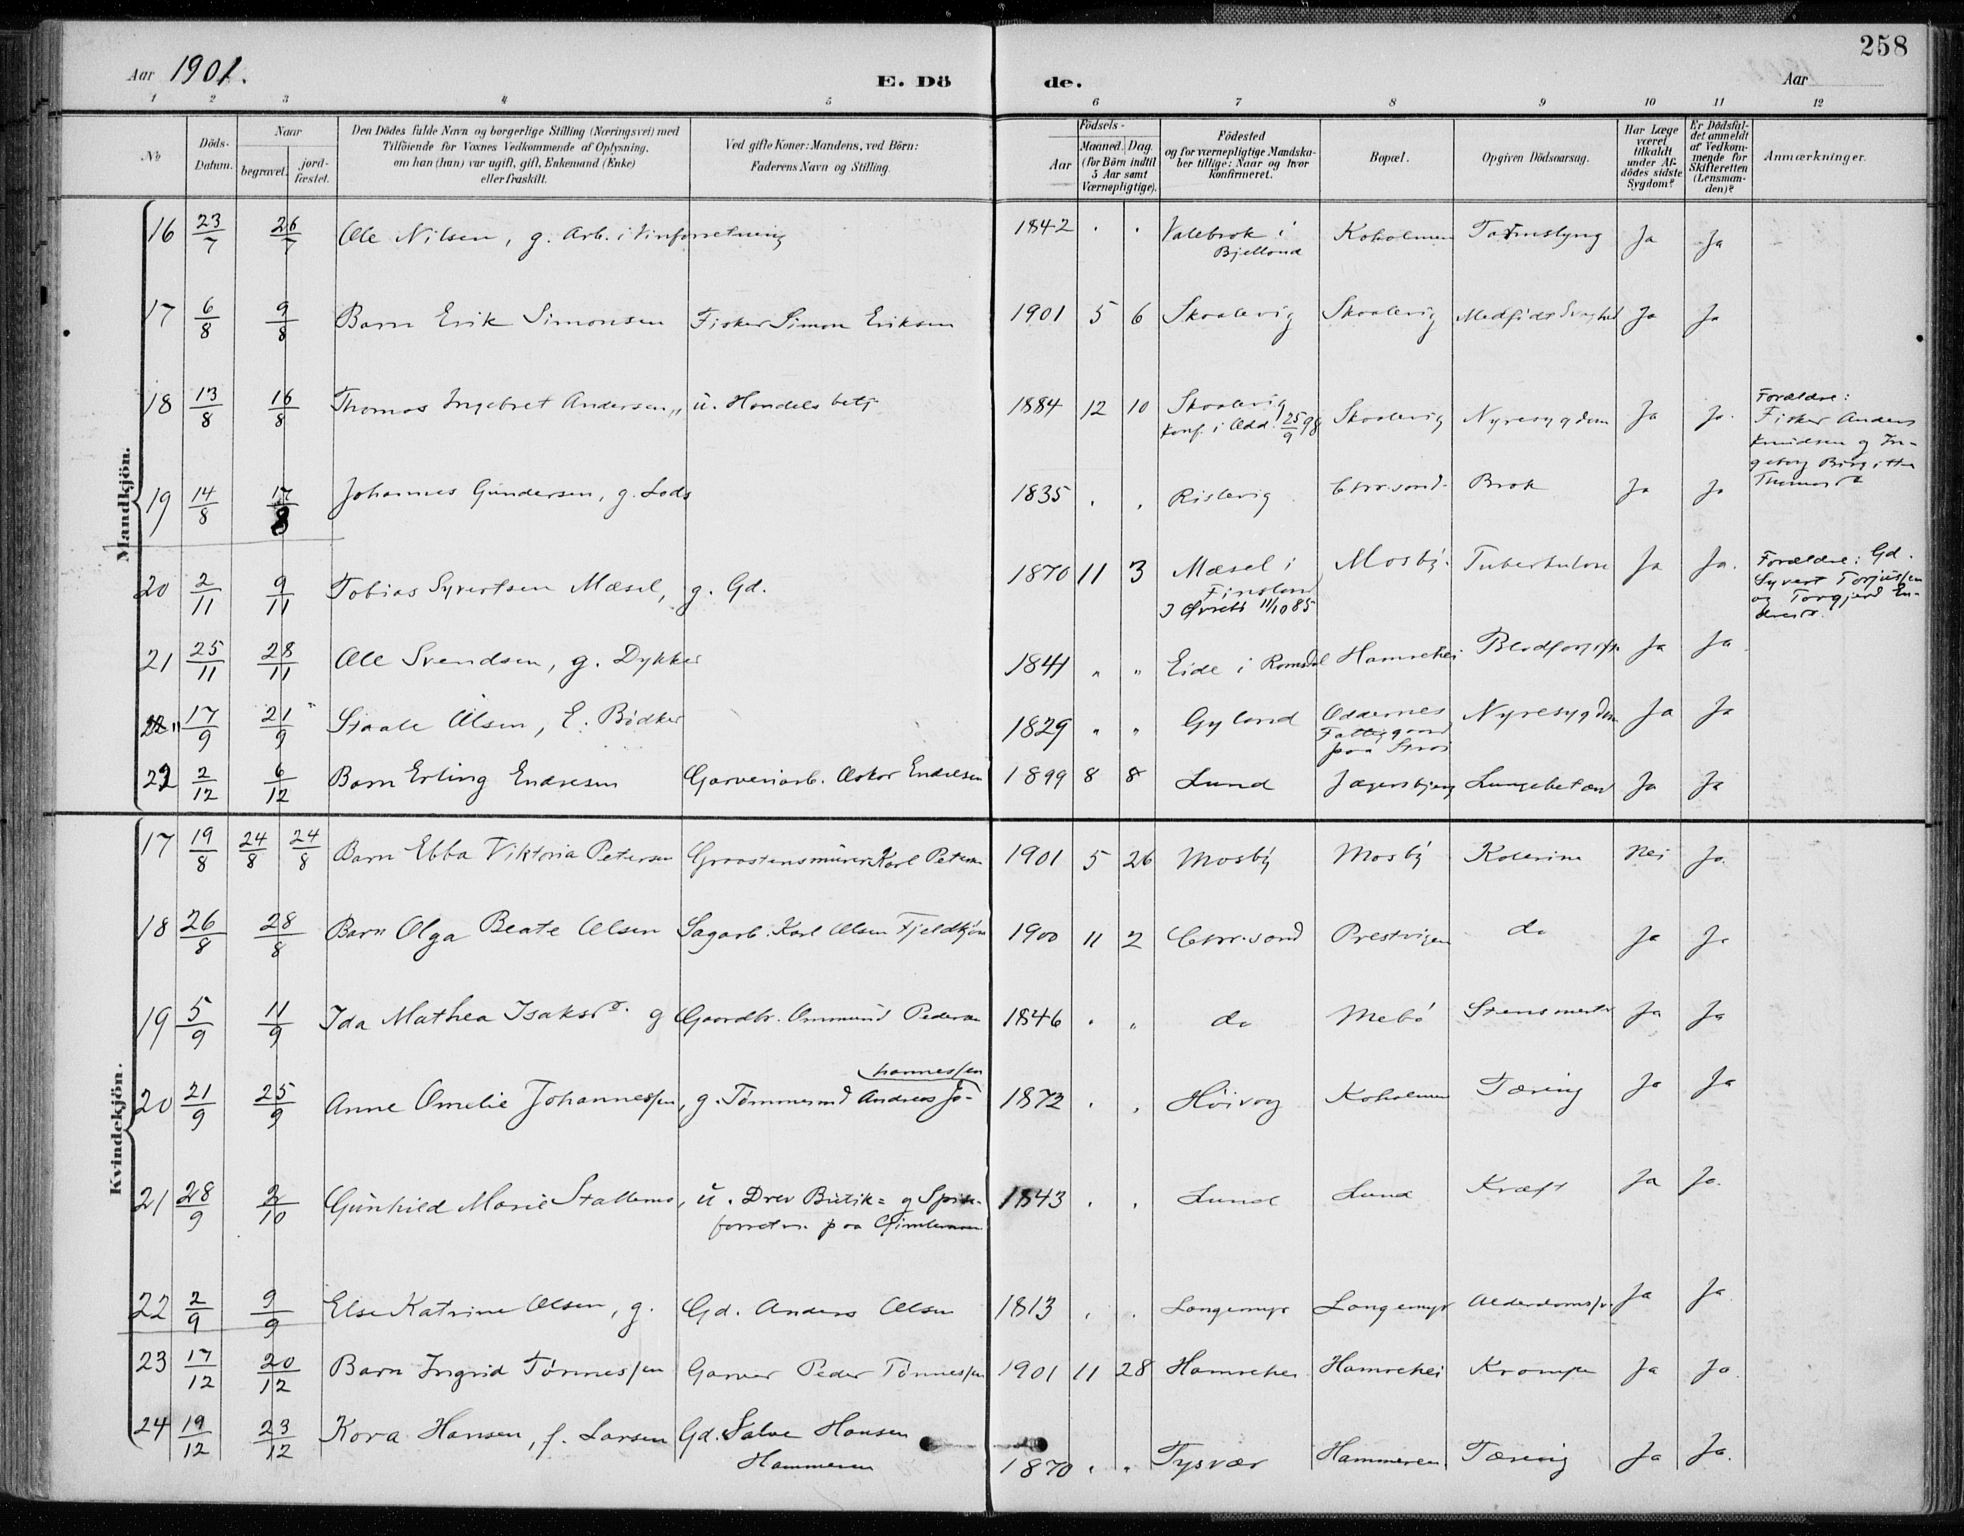 258
Aar 1901. E. Dö de. Aar
1 2 3 4 5 6 7 8 9 10 11 12
No
Döds-Datum.
Naar
begravet.
jord-fæstet.
Den Dödes fulde Navn og borgerlige Stilling (Næringsvei) med
Tilföiende for Voxnes Vedkommende af Oplysning,
om han (hun) var ugift, gift, Enkemand (Enke)
eller fraskilt.
Ved gifte Koner: Mandens, ved Börn:
Faderens Navn og Stilling.
Födsels-
Aar
Maaned. Dag.
(for Börn indtil
5 Aar samt
Værnepligtige).
Födested
og for værnepligtige Mandska-
ber tillige: Naar og hvor
konfirmeret.
Bopæl.
Opgiven Dödsaarsag.
Har Læge
været
tilkaldt
under Af-
dödes sidste
Sygdom?
Er Dödsfal-
det anmeldt
af Vedkom-
mende for
Skifteretten
(Lensman-
den)?
Anmærkninger.
Mandkjön.
16 23/7 26/7 Ole Nilsen, g. Arb. i Vinforretning 1842 . . Valebrok i Bjelland Koholmen Ja Ja
17 6/8 9/8 Barn Erik Simonsen Fisker Simon Eriksen 1901 5 6 Skaalevig Skaalevig Medfödt Svaghed Ja Ja
18 13/8 16/8 Thomas Ingebret Andersen, u. Handelsbetj. 1884 12 10 Skaalevig Konf. i Odd. 25/9 98 Skaalevig Nyresygdom Ja Ja. Forældre:
Fisker Anders
Knudsen og In-
geborg Birgitte
Thomasd.
19 14/8 17/8 Johannes Gundersen, g. Lods 1835 . . Rislevig Chr.sand. Brok Ja Ja
20 2/11 9/11 Tobias Syvertsen Mæsel, g. Gd. 1870 11 3 Mæsel i Finsland I Øvreb 11/10 85 Mosby. Tuberkulose Ja Ja. Forældre: Gd.
Syvert Torjussen
og Torgjerd En-
dresd.
21 25/11 28/11 Ole Svendsen, g. Dykker 1841 " " Eide i Romsdal Hamrehei Blodforgift. Ja Ja
17/9 21/9 Staale Olsen, E. Bödker 1829 " " Gyland Oddernes Fattiggaard paa Strai Nyresygdom Ja Ja
22 2/12 6/12 Barn Erling Endresen Garveriarb. Oskar Endresen 1899 8 8 Lund Jægersbjerg Lungebetænd Ja Ja
Kvindekjön.
17 19/8 24/8 24/8 Barn Ebba Viktoria Petersen Graastensmurer Karl Petersen 1901 5 26 Mosbÿ Mosbÿ Kolerine Nei Ja.
18 26/8 28/8 Barn Olga Beate Olsen Sagarb. Karl Olsen Fjeldkjön 1900 11 2 Chr.sand Prestvigen do Ja Ja
19 5/9 11/9 Ida Mathea Isaksd. g Gaardbr. Ommund Pedersen 1846 . " do Mebö Stensmerter Ja Ja
20 21/9 25/9 Anne Omelie Johannessen, g. Tømmermd Andreas Jo-
hannessen 1872 . . Höivog Koholmen Tæring Ja Ja
21 28/9 2/10 Gunhild Marie Stallemo, u. Drev Butik= og Spise-
forretn. paa Gimlemoen 1843 . . Lund Lund Kræft Ja Ja.
22 2/9 9/9 Else Katrine Olsen, g. Gd. Anders Olsen 1813 . . Langemyr Langemyr Ja Ja
23 17/12 20/12 Barn Ingrid Tönnessen Garver Peder Tönnessen 1901 11 28 Hamrehei Hamrehei Krampe Ja Ja
24 19/12 23/12 Kora Hansen, f. Larsen Gd. Salve Hansen
Hammeren 1870 . " Tysvær Hammeren Tæring Ja Ja.